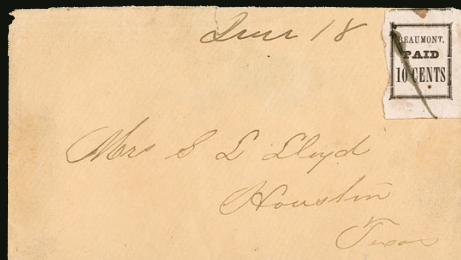 June 18
BEAUMONT,
PAID
10 CENTS
Mrs S L Lloyd
Houston
Texas